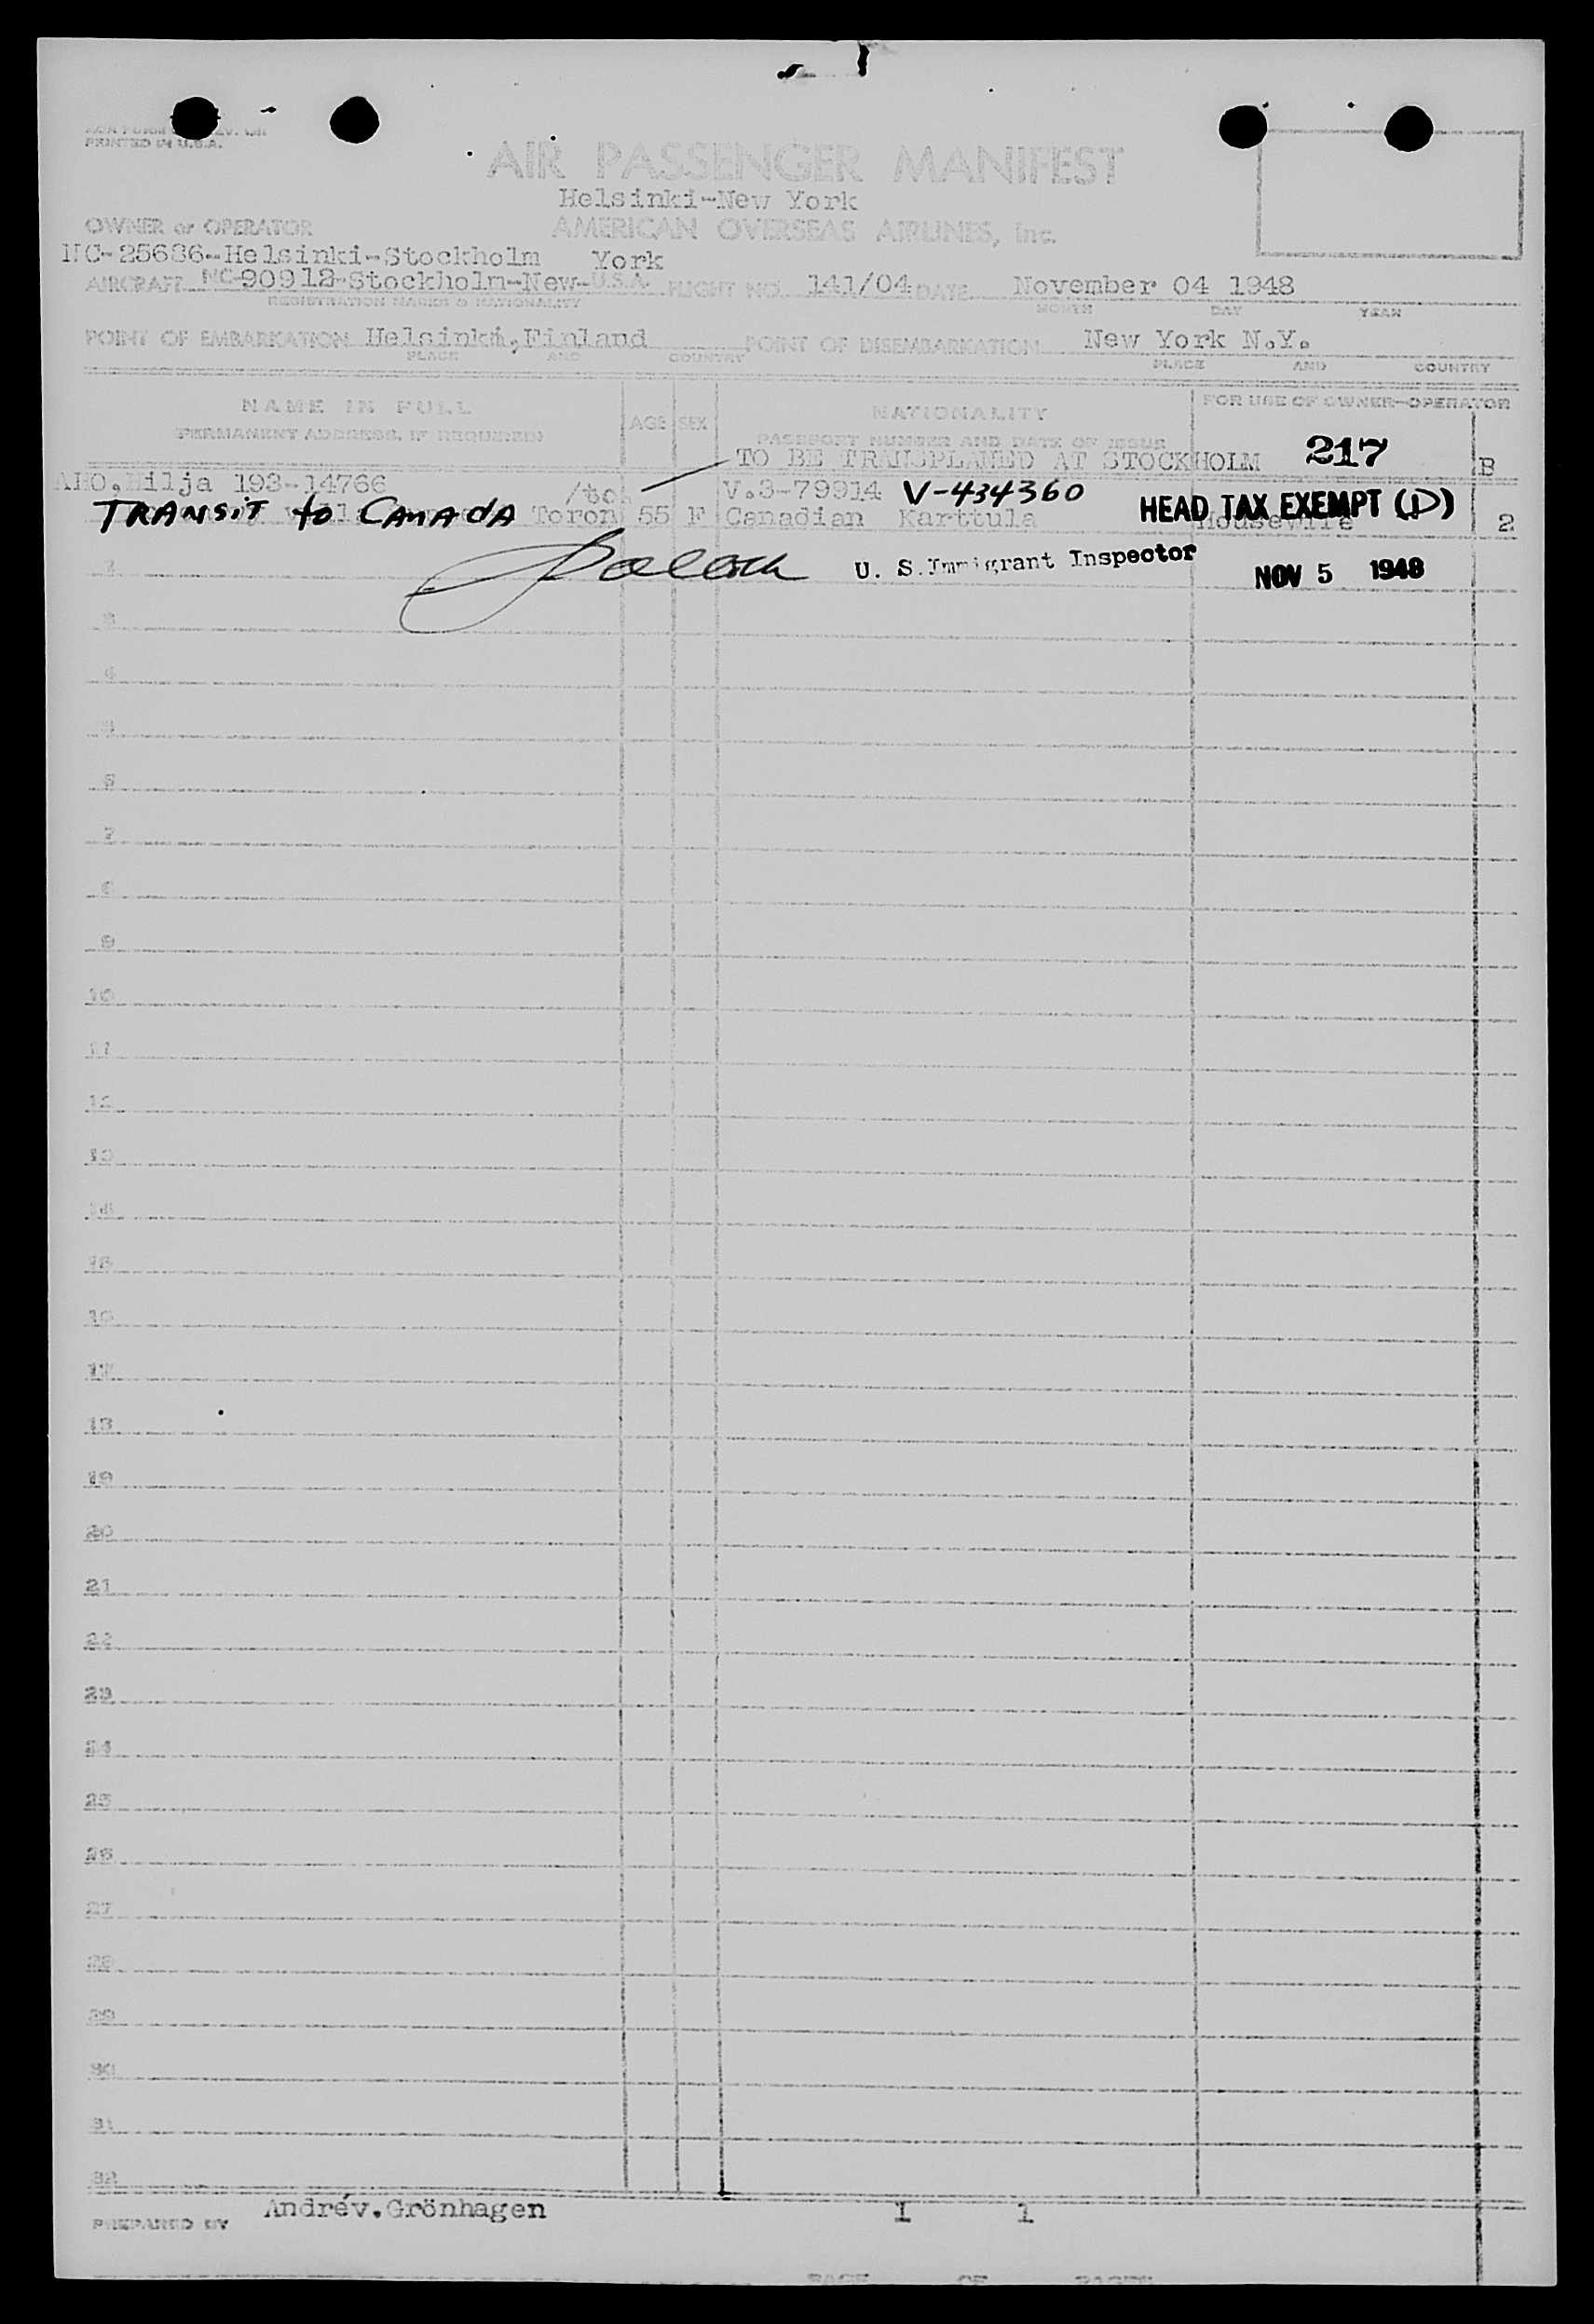 PRINTED IN U.S.A.
AIR PASSENGER MANIFEST
Helsinki-New York
OWNER or OPERATOR AMERICAN OVERSEAS AIRLINES, Inc.
NC-25686--Helsinki-Stockholm York
AIRCRAFT NC-90912-Stockholm-New- U.S.A. FLIGHT NO. 141/04 DATE November 04 1948
REGISTRATION MARKS & NATIONALITY MONTH DAY YEAR
POINT OF EMBARKATION Helsinki, Finland POINT OF DISEMBARKATION New York N.Y.
PLACE AND COUNTRY PLACE AND COUNTRY
NAME IN FULL AGE SEX NATIONALITY FOR USE OF OWNER-OPERATOR
(PERMANENT ADDRESS, IF REQUIRED) PASSPORT NUMBER AND DATE OF ISSUE
TO BE TRANSPLANED AT STOCKHOLM 217 B
AHO, Hilja 193-14766 /to V.3-79914 V-434360 HEAD TAX EXEMPT (D)
TRANSIT to CANADA Toron 55 F Canadian Karttula Housewife 2
2 U. S. Immigrant Inspector NOV 5 1948
3
4
5
6
7
8
9
10
11
12
13
14
15
16
17
18
19
20
21
22
23
24
25
26
27
28
29
30
31
32
PREPARED BY Andrév.Grönhagen I 1
PAGE OF PAGES